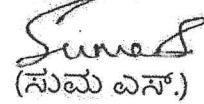 Suma S.
(ಸುಮ ಎಸ್.)